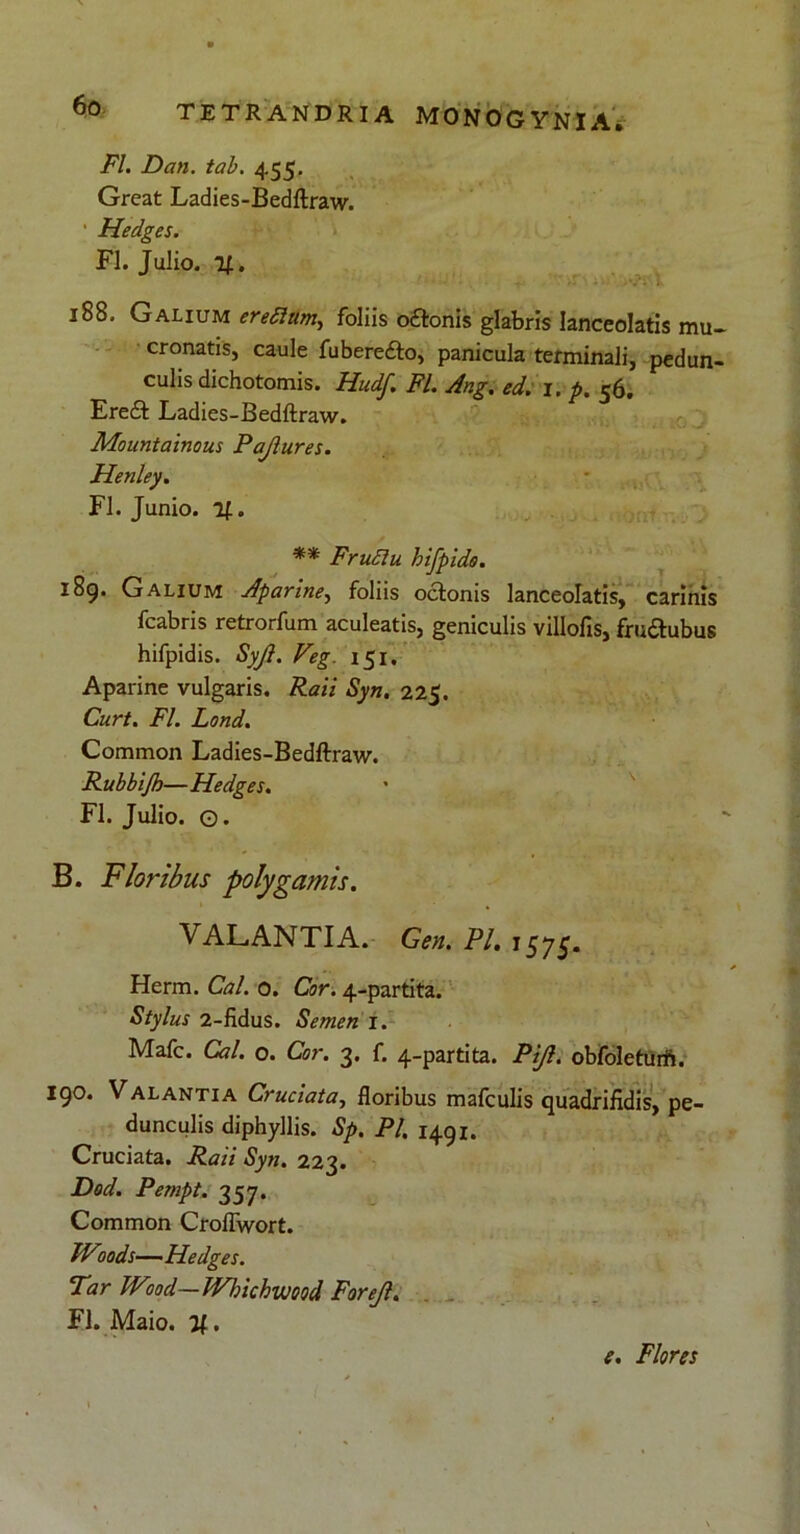 60 TETRANDRIA MONOGYNIA.
Fl. Dan. tab. 455.
Great Ladies-Bedſtraw.
Hedges.
Fl. Julio. ♃.
188. GALIUM erectum, foliis octonis glabris lanceolatis mu-
cronatis, caule ſuberecto, panicula terminali, pedun-
culis dichotomis. Hudſ. Fl. Ang. ed. 1. p. 56.
Erect Ladies-Bedſtraw.
Mountainous Paſtures.
Henley.
Fl. Junio. ♃.
** Fructu hiſpido.
189. GALIUM Aparine, foliis octonis lanceolatis, carinis
ſcabris retrorſum aculeatis, geniculis villoſis, fructubus
hiſpidis. Syſt. Veg. 151.
Aparine vulgaris. Raii Syn. 225.
Curt. Fl. Lond.
Common Ladies-Bedſtraw.
Rubbiſh—Hedges.
Fl. Julio. ☉.
B. Floribus polygamis.
VALANTIA. Gen. Pl. 1575.
Herm. Cal. 0. Cor. 4-partita.
Stylus 2-fidus. Semen 1.
Maſc. Cal. 0. Cor. 3. ſ. 4-partita. Piſt. obſoletum.
190. VALANTIA Cruciata, floribus maſculis quadrifidis, pe-
dunculis diphyllis. Sp. Pl. 1491.
Cruciata. Raii Syn. 223.
Dod. Pempt. 357.
Common Croſſwort.
Woods—Hedges.
Tar Wood—Whichwood Foreſt.
Fl. Maio. ♃.
e. Flores